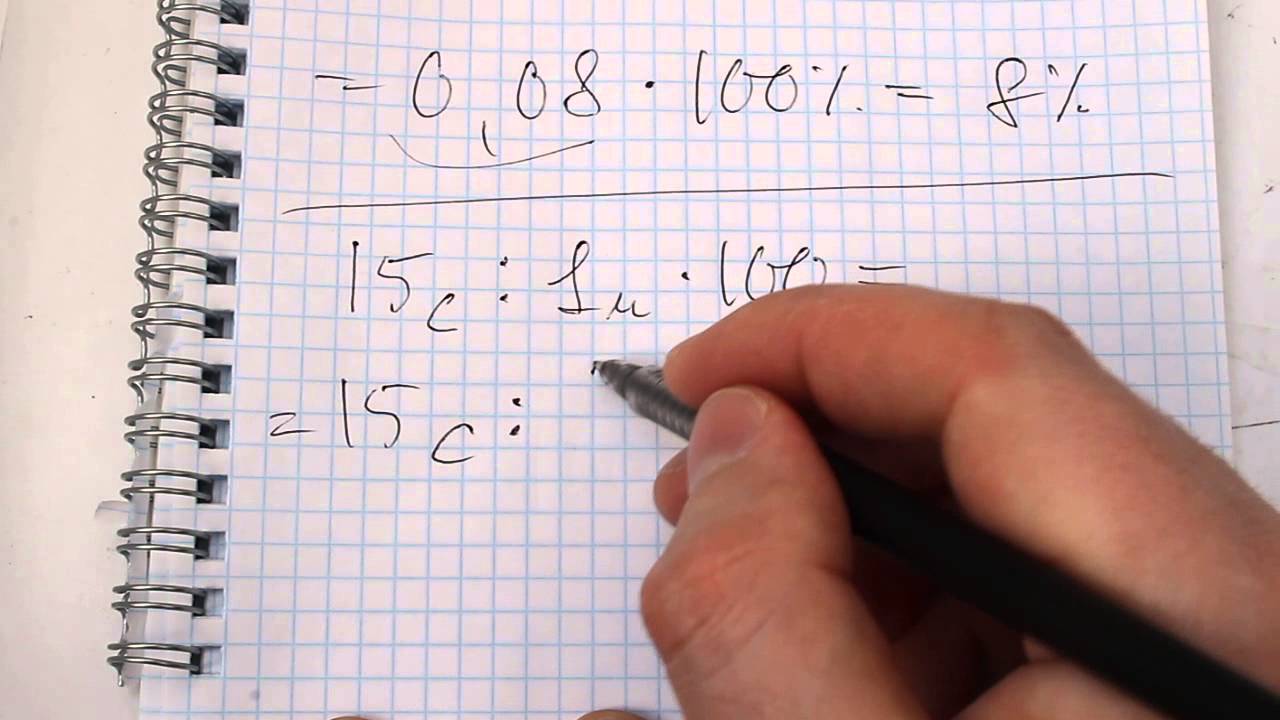 = 0,08 · 100% = 8%
15 с : 1 м · 100 =
= 15 с :